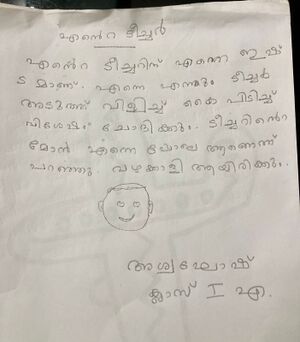 എന്റെ ടീച്ചർ
എന്റെ ടീച്ചറിന് എന്നെ ഇഷ്
ടമാണ്. എന്നെ എന്നും ടീച്ചർ
അടുത്ത് വിളിച്ച് കൈ പിടിച്ച്
വിശേഷം ചോദിക്കും. ടീച്ചറിന്റെ
മോൻ എന്നെ പോലെ ആണെന്ന്
പറഞ്ഞു. വഴക്കാളി ആയിരിക്കും.
അശ്വഘോഷ്
ക്ലാസ് I എ.